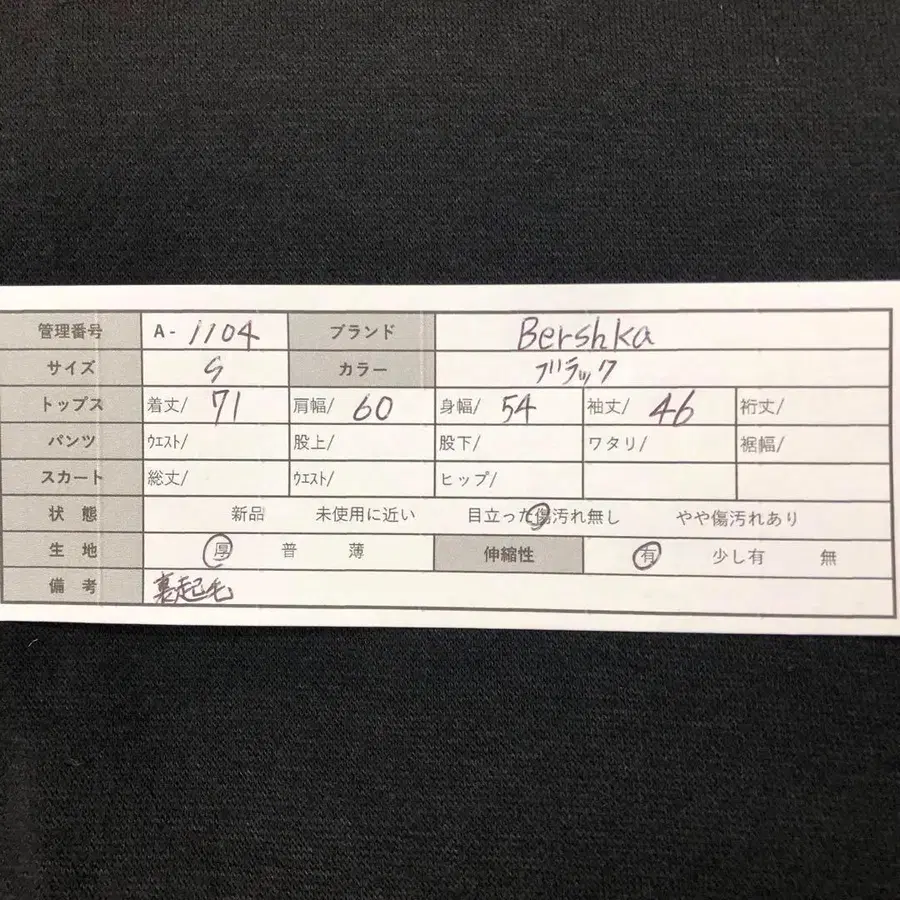 管理番号 A- 1104 ブランド Bershka
サイズ S カラー ブラック
トップス 着丈/ 71 肩幅/ 60 身幅/ 54 袖丈/ 46 裄丈/
パンツ ウエスト/ 股上/ 股下/ ワタリ/ 裾幅/
スカート 総丈/ ウエスト/ ヒップ/
状態 新品 未使用に近い 目立った傷汚れ無し やや傷汚れあり
生地 厚 普 薄 伸縮性 有 少し有 無
備考 裏起毛